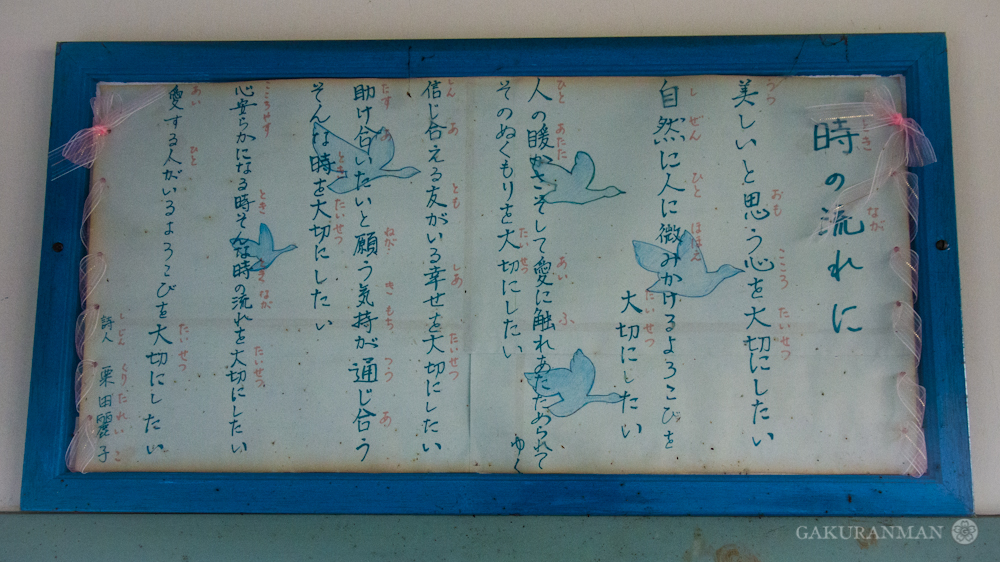 時の流れに
美しいと思う心を大切にしたい
自然に人に微みかけるよろこびを
大切にしたい
人の暖かさそして愛に触れあたためられて
ゆく
そのぬくもりを大切にしたい
信じ合える友がいる幸せを大切にしたい
助け合いたいと願う気持が通じ合う
そんな時を大切にしたい
心安らかになる時そんな時の流れを大切にしたい
愛する人がいるよろこびを大切にしたい
詩人 栗田麗子
GAKURANMAN